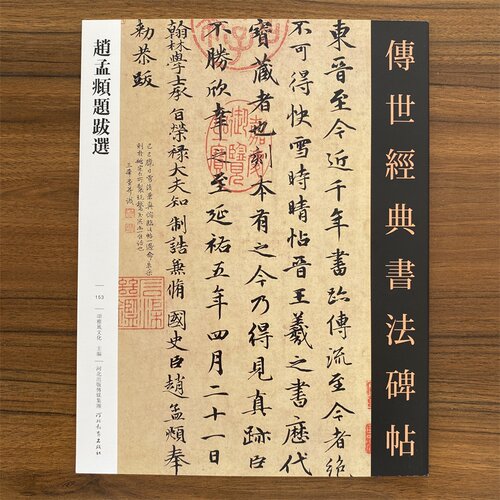 傳世經典書法碑帖
東晉至今近千年書跡傳流至今者絕
不可得快雪時晴帖晉王羲之書歷代
寶藏者也刻本有之今乃得見真跡臣
不勝欣幸之至延祐五年四月二十一日
翰林學士承旨榮祿大夫知制誥兼脩國史臣趙孟頫奉
勑恭跋
趙孟頫題跋選
163
主編
河北出版傳媒集團
河北教育出版社